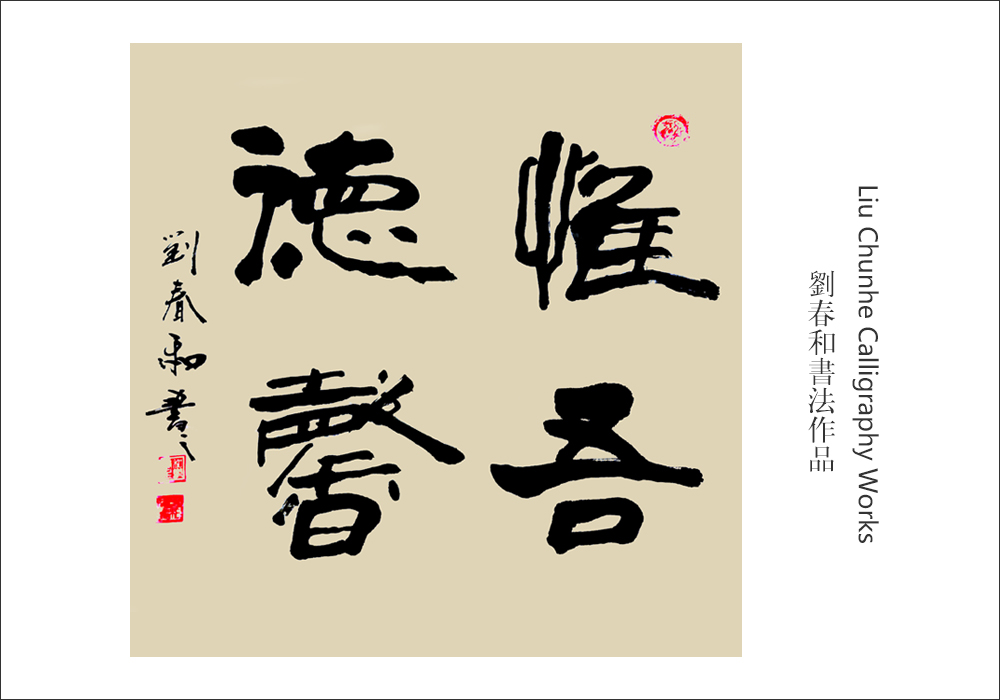 惟吾
德馨
劉春和書之
劉春和書法作品
Liu Chunhe Calligraphy Works